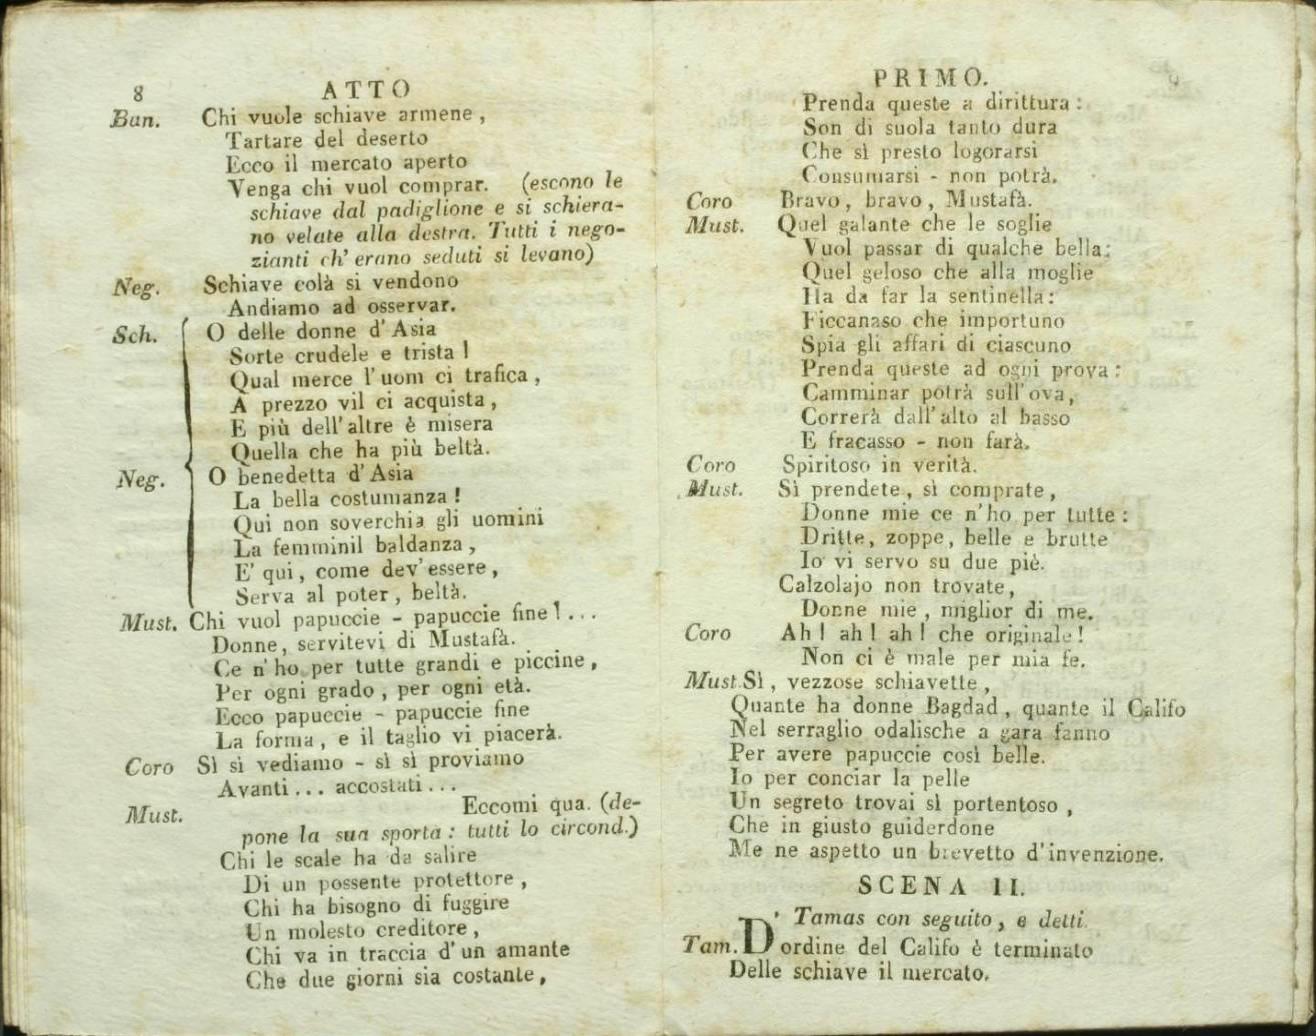 8
ATTO
Ban. Chi vuole schiave armene,
Tartare del deserto
Ecco il mercato aperto
Venga chi vuol comprar. (escono le
schiave dal padiglione e si schiera-
no velate alla destra. Tutti i nego-
zianti ch' erano seduti si levano)
Neg. Schiave colà si vendono
Andiamo ad osservar.
Sch. O delle donne d' Asia
Sorte crudele e trista!
Qual merce l' uom ci trafica,
A prezzo vil ci acquista,
E più dell' altre è misera
Quella che ha più beltà.
Neg. O benedetta d' Asia
La bella costumanza!
Qui non soverchia gli uomini
La femminil baldanza,
E' qui, come dev' essere,
Serva al poter, beltà.
Must. Chi vuol papuccie - papuccie fine!...
Donne, servitevi di Mustafà.
Ce n' ho per tutte grandi e piccine,
Per ogni grado, per ogni età.
Ecco papuccie - papuccie fine
La forma, e il taglio vi piacerà.
Coro Sì sì vediamo - sì sì proviamo
Avanti... accostati...
Must. Eccomi qua. (de-
pone la sua sporta: tutti lo circond.)
Chi le scale ha da salire
Di un possente protettore,
Chi ha bisogno di fuggire
Un molesto creditore,
Chi va in traccia d' un amante
Che due giorni sia costante,
PRIMO.
9
Prenda queste a dirittura:
Son di suola tanto dura
Che sì presto logorarsi
Consumarsi - non potrà.
Coro Bravo, bravo, Mustafà.
Must. Quel galante che le soglie
Vuol passar di qualche bella:
Quel geloso che alla moglie
Ha da far la sentinella:
Ficcanaso che importuno
Spia gli affari di ciascuno
Prenda queste ad ogni prova:
Camminar potrà sull' ova,
Correrà dall' alto al basso
E fracasso - non farà.
Coro Spiritoso in verità.
Must. Sì prendete, sì comprate,
Donne mie ce n' ho per tutte:
Dritte, zoppe, belle e brutte
Io vi servo su due piè.
Calzolajo non trovate,
Donne mie, miglior di me.
Coro Ah! ah! ah! che originale!
Non ci è male per mia fe.
Must. Sì, vezzose schiavette,
Quante ha donne Bagdad, quante il Califo
Nel serraglio odalische a gara fanno
Per avere papuccie così belle.
Io per conciar la pelle
Un segreto trovai sì portentoso,
Che in giusto guiderdone
Me ne aspetto un brevetto d' invenzione.
SCENA II.
Tamas con seguito, e detti.
Tam. D' ordine del Califo è terminato
Delle schiave il mercato.